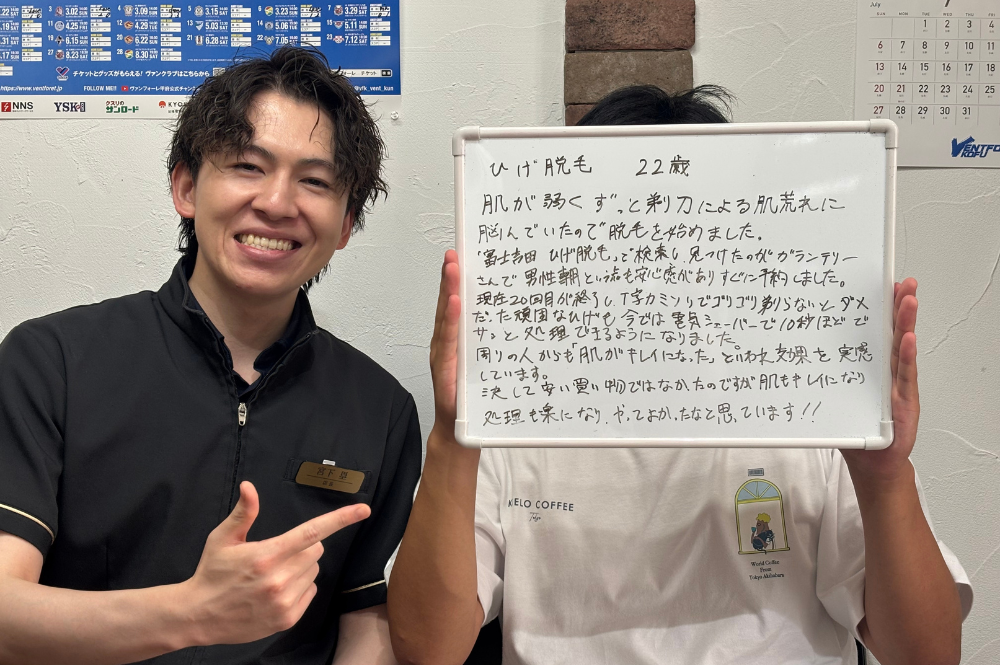 チケットとグッズがもらえる！ヴァンクラブはこちらから
https://www.ventforet.
FOLLOW ME!!
ヴァンフォーレ甲府公式チャン
フォーレ チケット
@vfk_vent_kun
NNS
YSK
クスリの
サンロード
KYO
July
SUN MON TUE WED THU FRI
1 2 3 4
6 7 8 9 10 11
13 14 15 16 17 18
20 21 22 23 24 25
27 28 29 30 31
VENTFO
KOFU
ひげ脱毛 22歳
肌が弱くずっと剃刀による肌荒れに
悩んでいたので脱毛を始めました。
「富士吉田 ひげ脱毛」で検索し見つけたのがガランテリー
さんで男性専門という点も安心感がありすぐに予約しました。
現在20回目が終了し、T字カミソリでゴリゴリ剃らないとダメ
だった頑固なひげも今では電気シェーバーで10秒ほどで
サッと処理できるようになりました。
周りの人からも「肌がキレイになった」といわれ効果を実感
しています。
決して安い買い物ではなかったのですが肌もキレイになり
処理も楽になり、やってよかったなと思っています!!
宮下
MELO COFFEE
Tokyo
World Coffee
From
Tokyo Akihabara